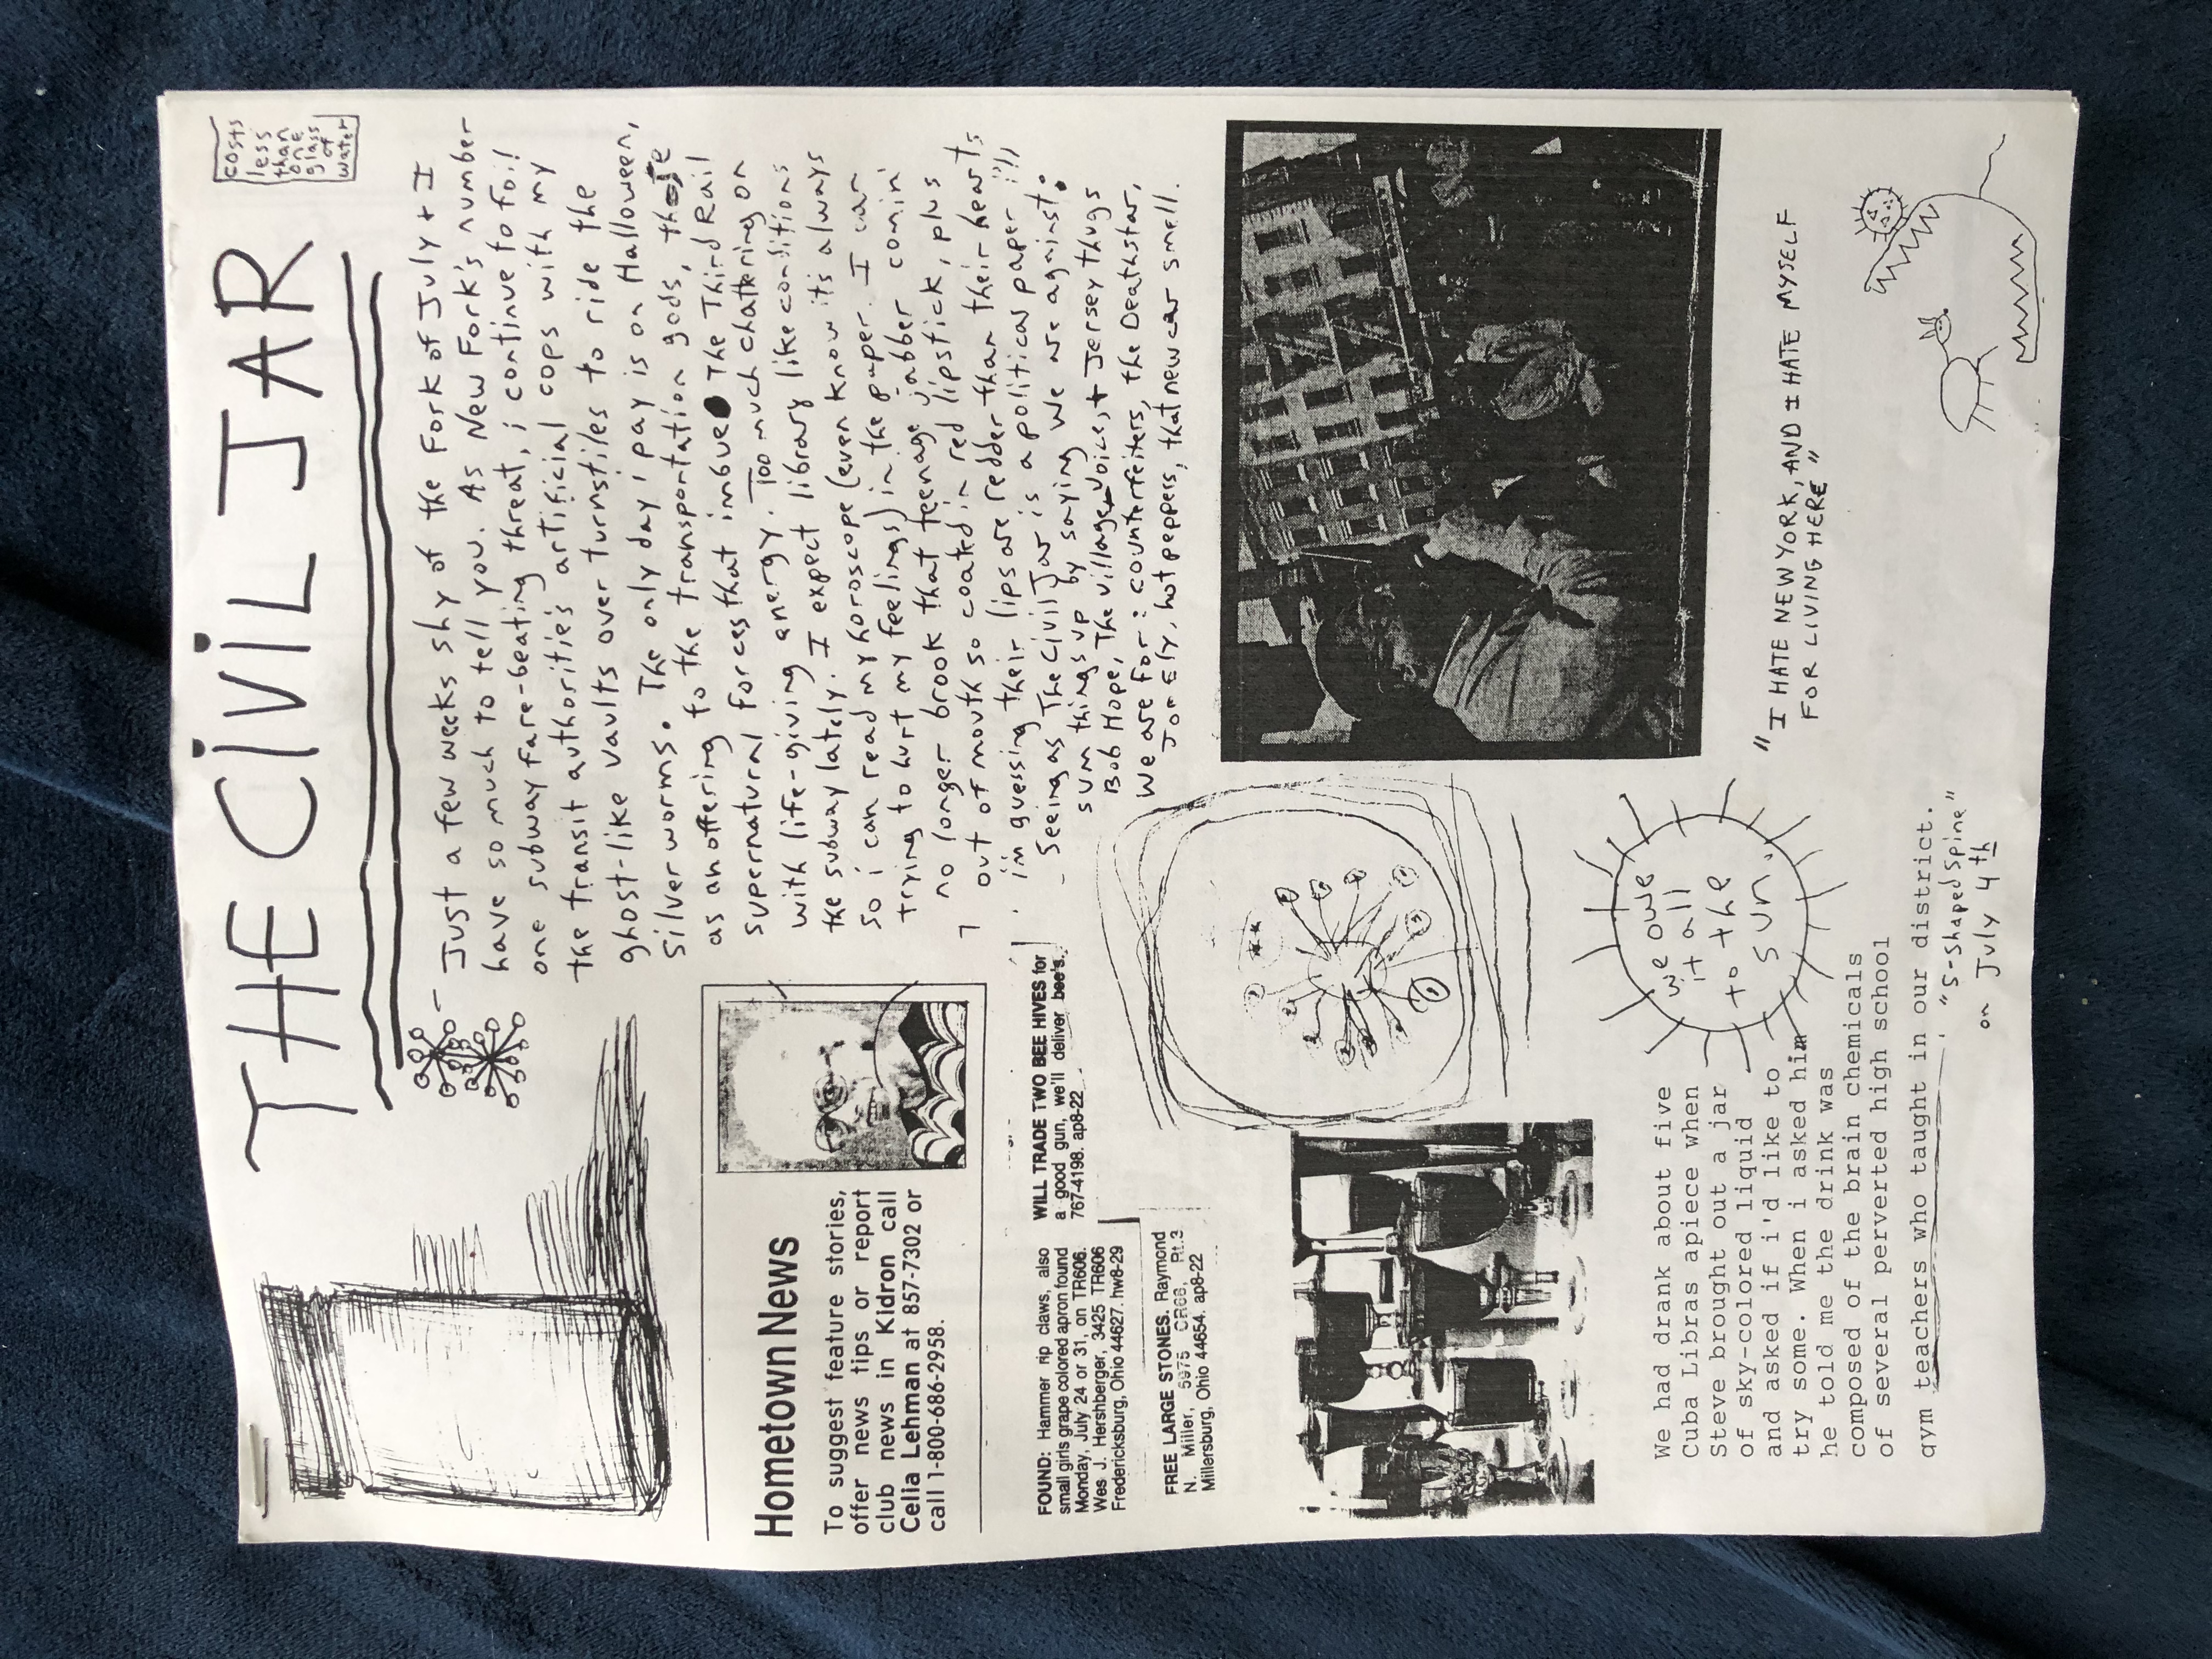 THE CIVIL JAR
costs
less
than
one
glass
of
water
Just a few weeks shy of the Fork of July + I
have so much to tell you. As New Fork's number
one subway fare-beating threat, i continue to foil
the transit authorities artificial cops with my
ghost-like vaults over turnstiles to ride the
silver worms. The only day i pay is on Halloween,
as an offering to the transportation gods, those
supernatural forces that imbue The Third Rail
with life-giving energy. Too much chattering on
the subway lately. I expect library like conditions
so i can read my horoscope (even know it's always
trying to hurt my feelings) in the paper. I can
no longer brook that teenage jabber comin'
out of mouth so coated in red lipstick, plus
i'm guessing their lips are redder than their hearts
- Seeing as The Civil Jar is a political paper !!!,
sum things up by saying we are against:
Bob Hope, The village voice, + Jersey thugs
We are for: counterfeiters, the Deathstar,
hot peppers, that new car smell.
Hometown News
To suggest feature stories,
offer news tips or report
club news in Kidron call
Celia Lehman at 857-7302 or
call 1-800-686-2958.
FOUND: Hammer rip claws, also
small girls grape colored apron found
Monday, July 24 or 31, on TR606.
Wes J. Hershberger, 3425 TR606
Fredericksburg, Ohio 44627. hw8-29
WILL TRADE TWO BEE HIVES for
a good gun, we'll deliver bee's.
767-4198. ap8-22
FREE LARGE STONES. Raymond
N. Miller, 5975 CR68, Rt.3
Millersburg, Ohio 44654. ap8-22
We had drank about five
Cuba Libras apiece when
Steve brought out a jar
of sky-colored liquid
and asked if i'd like to
try some. When i asked him
he told me the drink was
composed of the brain chemicals
of several perverted high school
gym teachers who taught in our district.
"S-shaped spine"
on July 4th
we owe
it all
to the
sun.
"I HATE NEW YORK, AND I HATE MYSELF
FOR LIVING HERE"